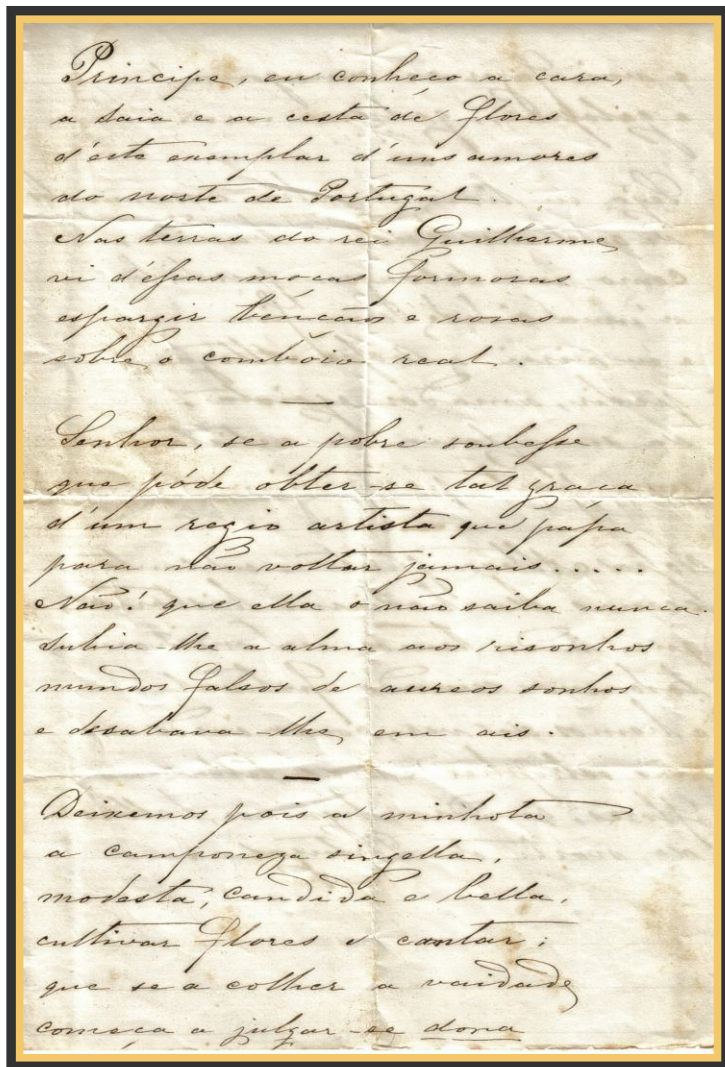 Principe, eu conheço a cara,
a saia e a cesta de flores
d'este exemplar d'uns amores
do norte de Portugal.
Nas terras do rei Guilherme
vi d'essas moças formosas
espargir bençãos e rosas
sobre o combôio real.
Senhor, se a pobre soubesse
que póde obter-se tal graça
d'um regio artista que passa
para não voltar jamais.....
Não! que ella o não saiba nunca.
Subia-lhe a alma aos risonhos
mundos falsos de aureos sonhos
e desabava-lhe em ais.
Deixemos pois a minhota
a camponeza singella,
modesta, candida e bella,
cultivar flores e cantar;
que se a colher a vaidade
começa a julgar-se dona